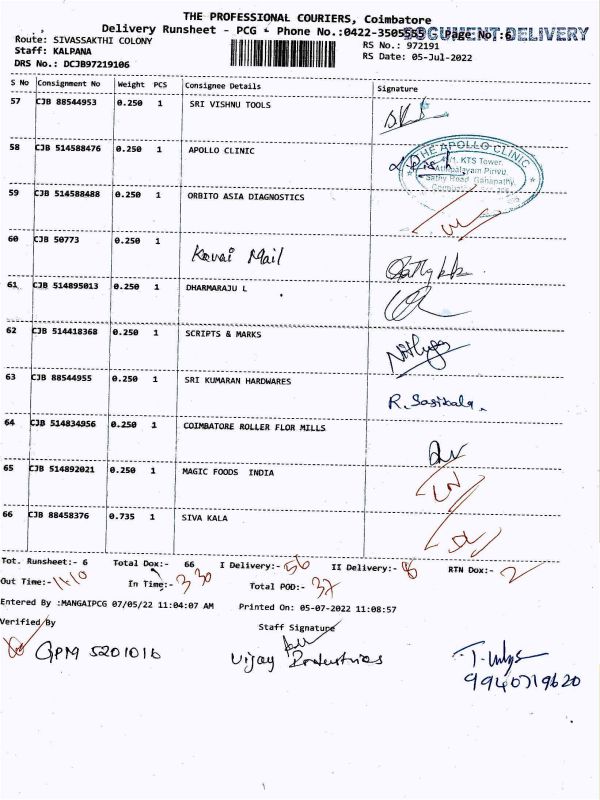 THE PROFESSIONAL COURIERS, Coimbatore
Delivery Runsheet - PCG - Phone No.:0422-3505555 Page No:6 DOCUMENT DELIVERY
Route: SIVASSAKTHI COLONY RS No.: 972191
Staff: KALPANA RS Date: 05-Jul-2022
DRS No.: DCJB97219106
S No Consignment No Weight PCS Consignee Details Signature
57 CJB 88544953 0.250 1 SRI VISHNU TOOLS
58 CJB 514588476 0.250 1 APOLLO CLINIC
THE APOLLO CLINIC
KTS Tower,
Athipalayam Pirivu,
Sathy Road Ganapathy,
59 CJB 514588488 0.250 1 ORBITO ASIA DIAGNOSTICS
60 CJB 50773 0.250 1
Kovai Mail
61 CJB 514895013 0.250 1 DHARMARAJU L
62 CJB 514418368 0.250 1 SCRIPTS & MARKS
63 CJB 88544955 0.250 1 SRI KUMARAN HARDWARES R. Sasibala.
64 CJB 514834956 0.250 1 COIMBATORE ROLLER FLOR MILLS
65 CJB 514892021 0.250 1 MAGIC FOODS INDIA
66 CJB 88458376 0.735 1 SIVA KALA
Tot. Runsheet:- 6 Total Dox:- 66 I Delivery:- 56 II Delivery:- 8 RTN Dox:- 2
Out Time:- 11.10 In Time:- 3.30 Total POD:- 37
Entered By :MANGAIPCG 07/05/22 11:04:07 AM Printed On: 05-07-2022 11:08:57
Verified By Staff Signature
GPM 5201016 Vijay Industries
9940719620